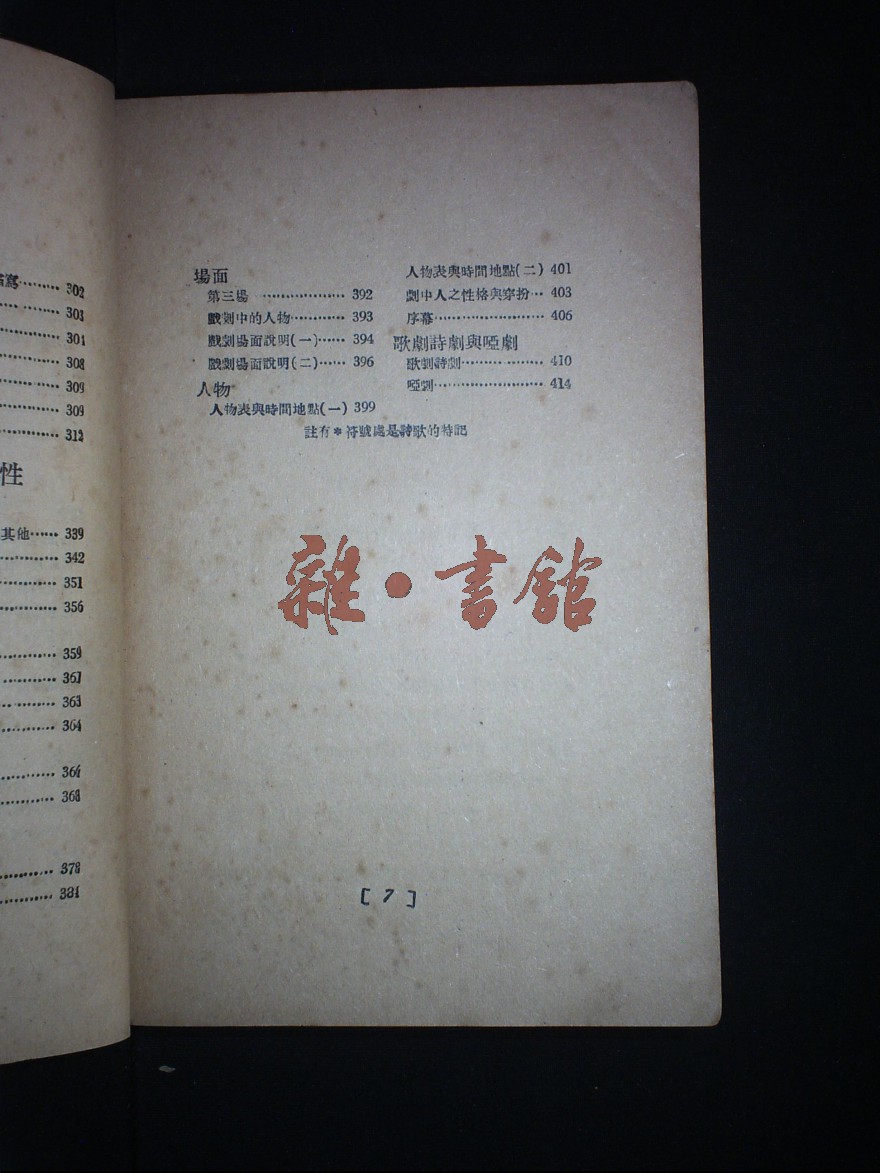 302
303
304
308
309
309
312
性
其他…… 339
342
351
356
359
361
363
364
366
368
378
381
場面
第三場 ……………… 392
戲劇中的人物……… 393
戲劇場面說明(一)…… 394
戲劇場面說明(二)…… 396
人物
人物表與時間地點(一) 399
人物表與時間地點(二) 401
劇中人之性格與穿扮… 403
序幕…………………… 406
歌劇詩劇與啞劇
歌劇詩劇……………… 410
啞劇…………………… 414
註有*符號處是詩歌的特記
雜·書館
[ 7 ]